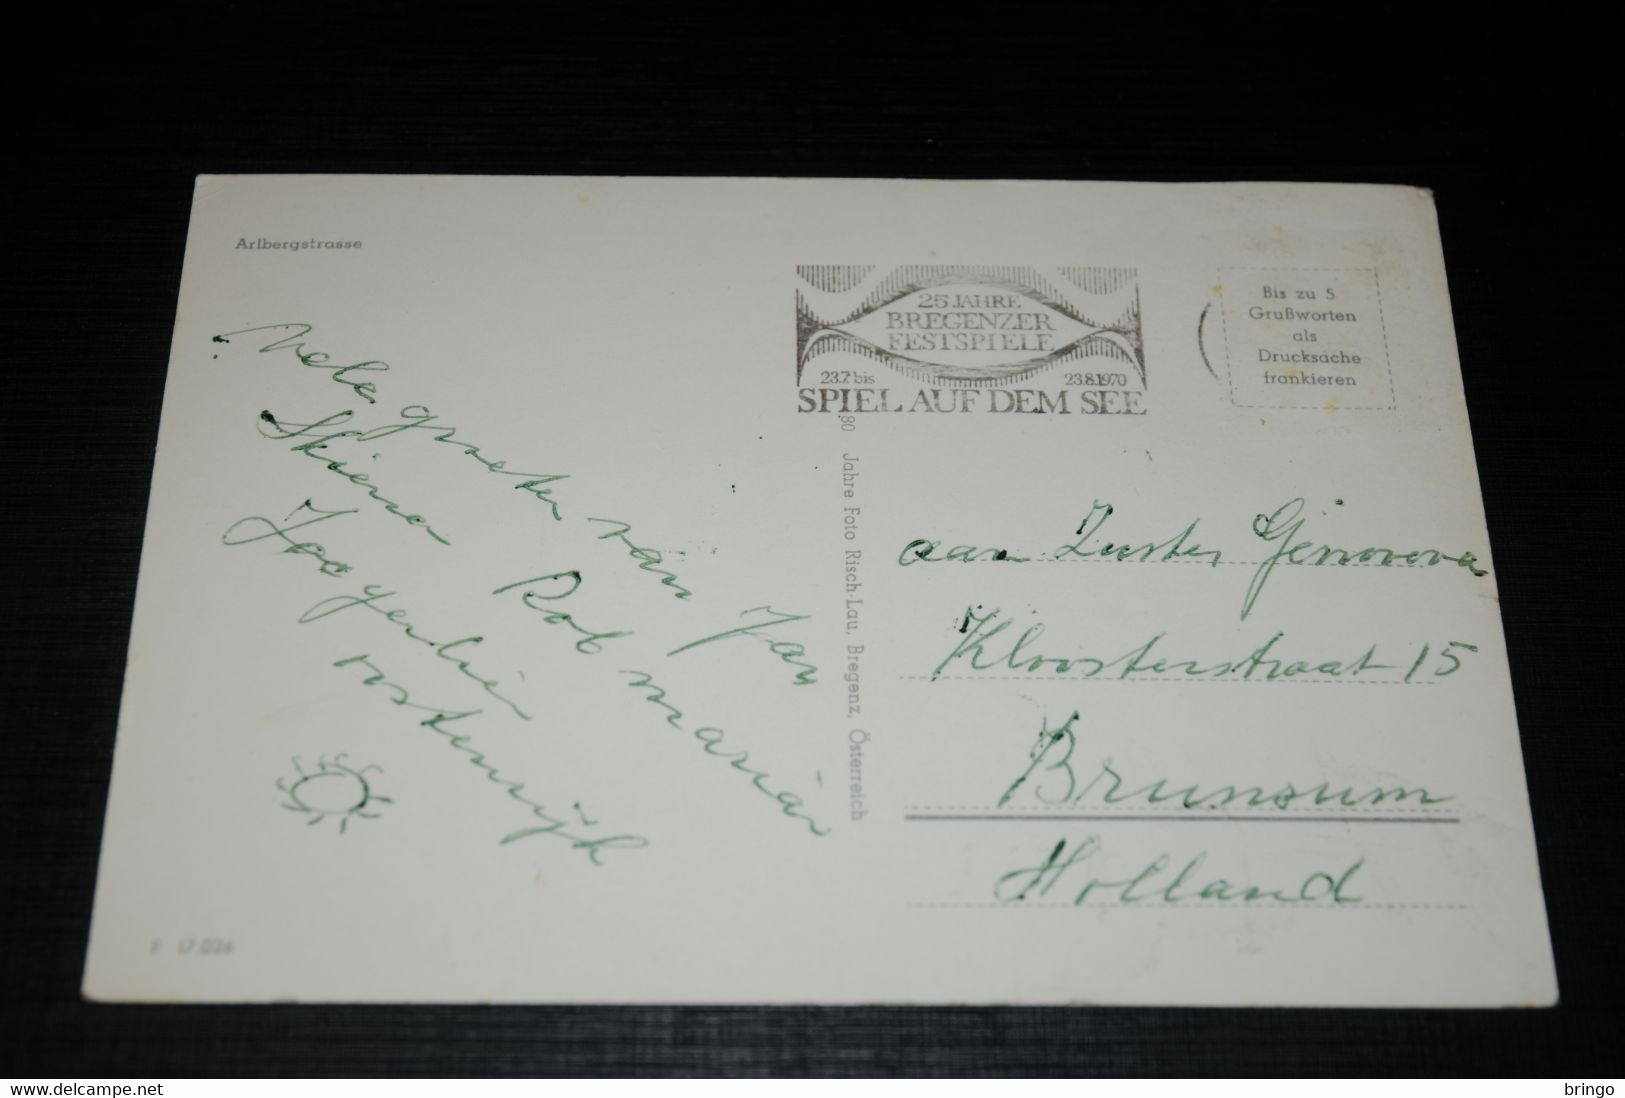 Arlbergstrasse
25 JAHRE
BREGENZER
FESTSPIELE
23.7. bis 23.8.1970
SPIEL AUF DEM SEE
Bis zu 5
Grußworten
als
Drucksache
frankieren
Vele groeten van Jan
Rob marián
oostenrijk
80 Jahre Foto Risch-Lau, Bregenz, Österreich
aan Zuster Genoveva
Kloosterstraat 15
Brunsum
Holland
F 17.026
delcampe.net
bringo